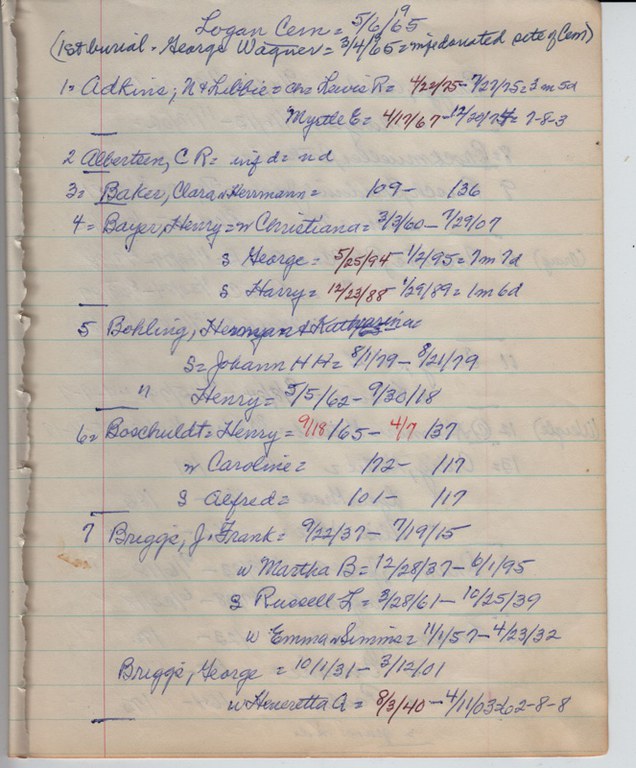 Logan Cem = 5/6/1965
(1st burial - George Wagner = 3/4/65 = inf donated site of Cem)
1= Adkins; N & Libbie = ch = Lewis R = 4/22/75 - 7/27/75 = 3m 5d
Myrtle E = 4/17/67 - 12/20/74 = 7-8-3
2 Albertsen, C R = inf d = nd
3= Baker, Clara w Herrmann = /09 - /36
4= Bayer, Henry = w Christiana = 3/3/60 - 7/29/07
s George = 5/25/94 - 1/2/95 = 7m 7d
s Harry = 12/23/88 - 1/29/89 = 1m 6d
5 Bohling, Herman & Katharina
s = Johann H H = 8/1/79 - 8/21/79
" Henry = 5/5/62 - 9/30/18
6= Boschuldt = Henry = 9/18/65 - 4/7/37
w Caroline = /72 - /17
s Alfred = /01 - /17
7 Briggs, J. Frank = 9/22/37 - 7/19/15
w Martha B = 12/28/37 - 6/1/95
s Russell L = 3/28/61 - 10/25/39
w Emma w Simms = 11/1/57 - 4/23/32
Briggs, George = 10/1/31 - 3/12/01
w Heneretta A = 8/3/40 - 4/11/03 = 62-8-8